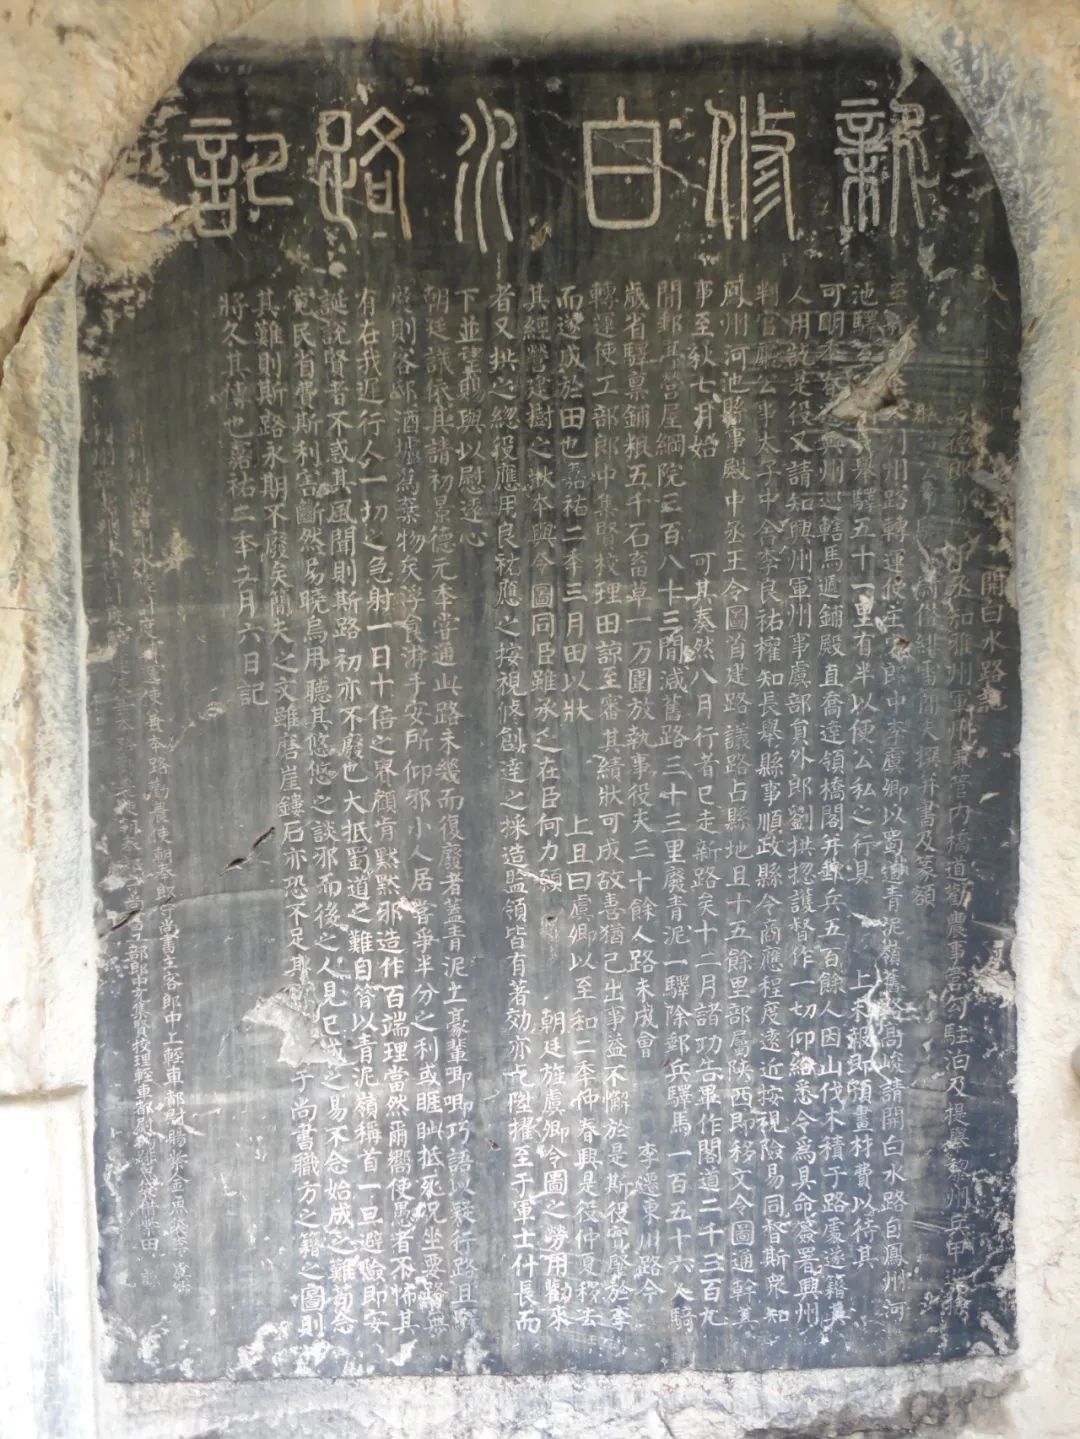 新修白水路記
開白水路記
丞知雅州軍州兼管內橋道勸農事管勾駐泊及提舉黎州兵甲
簡夫撰并書及篆額
至和 州路轉運使主客郎中李虞卿以蜀道青泥嶺舊路高峻請開白水路自鳳州河
池驛 舉驛五十一里有半以便公私之行具 上未報即預畫材費以待其
可明 興州巡轄馬遞鋪殿直喬達領橋閣并郵兵五百餘人因山伐木積于路處遂籍其
人用訖是役又請知興州軍州事虞部員外郎劉拱揔護督作一切仰給悉令為具命簽署興州
判官廳公事太子中舍李良祐權知長舉縣事順政縣令商應程度遠近按視險易同督斯衆知
鳳州河池縣事殿中丞王令圖首建路議路占縣地且十五餘里部屬陝西即移文令圖通幹其
事至秋七月始 可其奏然八月行者已走新路矣十二月諸功告畢作閣道二千三百九
間郵亭營屋綱院三百八十三間減舊路三十三里廢青泥一驛除郵兵驛馬一百五十六人騎
歲省驛稟鋪糧五千石畜草一万圍放執事役夫三十餘人路未成會 李遷東川路今
轉運使工部郎中集賢校理田諒至審其績狀可成故善猶己出事益不懈於是斯役實肇於李
而遂成於田也嘉祐二年三月田以狀 上且曰虞卿以至和二年仲春興是役仲夏移去
其經營建樹之狀本與令圖同臣雖承乏在臣何力願 朝廷旌虞卿令圖之勞用勸來
者又拱之總役應用良祐應之按視修創達之採造監領皆有著効亦乞陞擢至于軍士什長而
下並望賜與以慰遠心
朝廷議依其請初景德元年嘗通此路未幾而復廢者蓋青泥土豪輩唧唧巧語以疑行路且
廢則客邸酒壚為棄物矣浮食游手安所仰邪小人居嘗爭半分之利或睚眦抵死況坐要路無
有在我遲行人一切之急射一日十倍之資顧肯默默邪造作百端理當然爾嚮使愚者不怖其
誕說賢者不惑其風聞則斯路初亦不廢也大抵蜀道之難自昔以青泥嶺稱首一旦避險即安
寬民省費斯利害斷然易曉烏用聽其悠悠之談邪而後之人見已成之易不念始成之難苟念
其難則斯路永期不廢矣簡夫之文雖磨崖鏤石亦恐不足其 于尚書職方之籍之圖則
將久其傳也嘉祐二年二月六日記
利州路 水陸計度 使兼本路勸農使朝奉郎守尚書主客郎中上輕車都尉賜紫金魚袋李虞卿
工部郎中充集賢校理輕車都尉 田諒